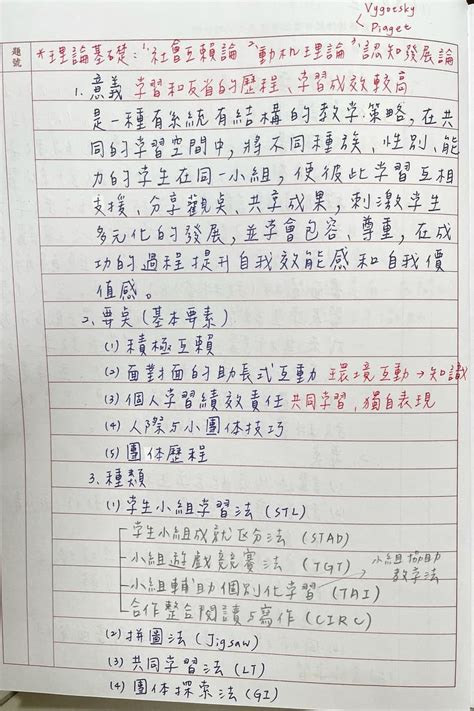 Vygotsky
Piaget
題號
*理論基礎:1.社會互賴論 2.動机理論 3.認知發展論
1.意義 學習和反省的歷程、學習成效較高
是一種有系統有結構的教学策略,在共
同的学習空間中,將不同種族、性別、能
力的学生在同一小組,使彼此学習互相
支援、分享觀点、共享成果,刺激学生
多元化的發展,並学會包容、尊重,在成
功的過程提升自我效能感和自我價
值感。
2.要点(基本要素)
(1)積極互賴
(2)面對面的助長式互動 環境互動→知識
(3)個人学習績效責任 共同学習,獨自表現
(4)人際与小團体技巧
(5)團体歷程
3.種類
(1)学生小組学習法(STL)
学生小組成就区分法(STAD)
小組遊戲競賽法(TGT)
小組協助教学法
小組輔助個別化学習(TAI)
合作整合閱讀与寫作(CIRC)
(2)拼圖法(Jigsaw)
(3)共同学習法(LT)
(4)團体探索法(GI)